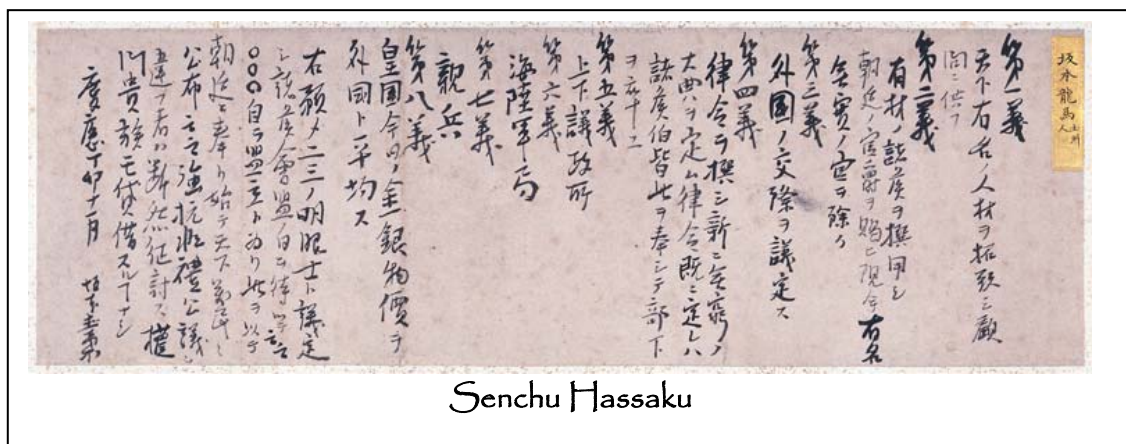 坂本龍馬 土州人
第一義
天下有名ノ人材ヲ招致シ顧
問ニ供フ
第二義
有材ノ諸侯ヲ撰用シ
朝廷ノ官爵ヲ賜ヒ現今有名
無實ノ官ヲ除ク
第三義
外國ノ交際ヲ議定ス
第四義
律令ヲ撰シ新ニ無窮ノ
大典ヲ定ム律令既ニ定レハ
諸侯伯皆此ヲ奉シテ部下
ヲ率ユ
第五義
上下議政所
第六義
海陸軍局
第七義
親兵
第八義
皇國今日ノ金銀物價ヲ
外國ト平均ス
右預メ二三ノ明眼士ト議定
シ諸侯會盟ノ日ヲ待ツテ云云
〇〇〇自ラ盟主ト為リ此ヲ以テ
朝廷ニ奉リ始テ天下萬民ニ
公布云云強抗非禮公議ニ
違フ者ハ断然征討ス權
門貴族モ貸借スルコトナシ
慶應丁卯十一月 坂本直柔
Senchu Hassaku